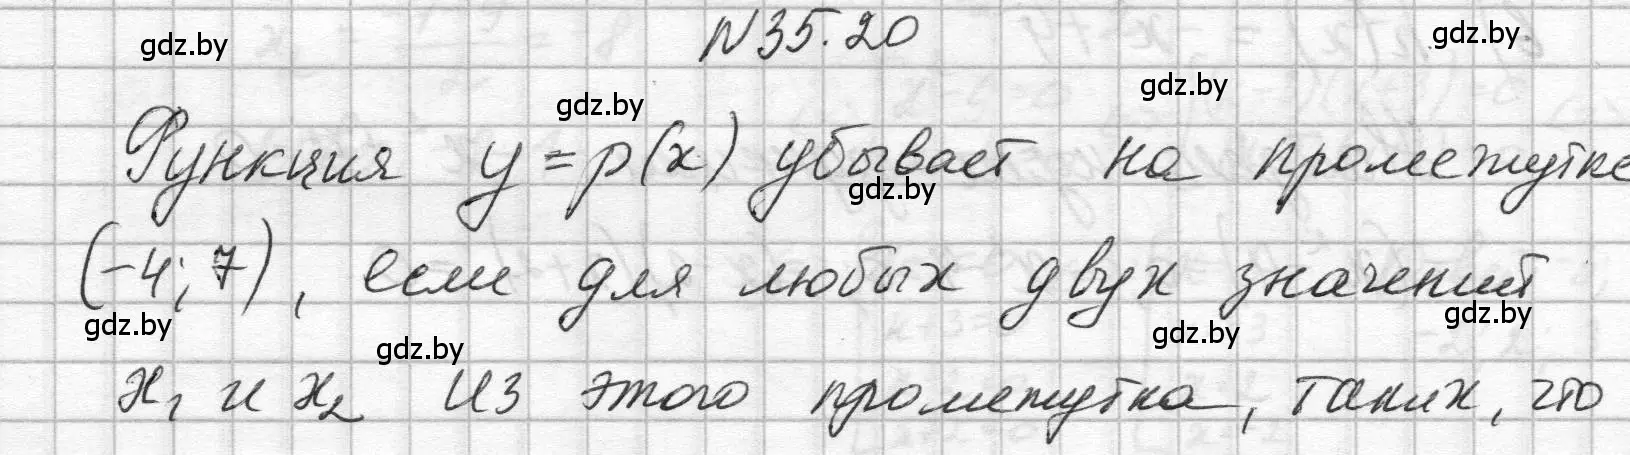 N 35.20
Функция y = p(x) убывает на промежутке
(-4; 7), если для любых двух значений
x₁ и x₂ из этого промежутка, таких, что
gdz.by
gdz.by
gdz.by
gdz.by
gdz.by
gdz.by
gdz.by
gdz.by
gdz.by